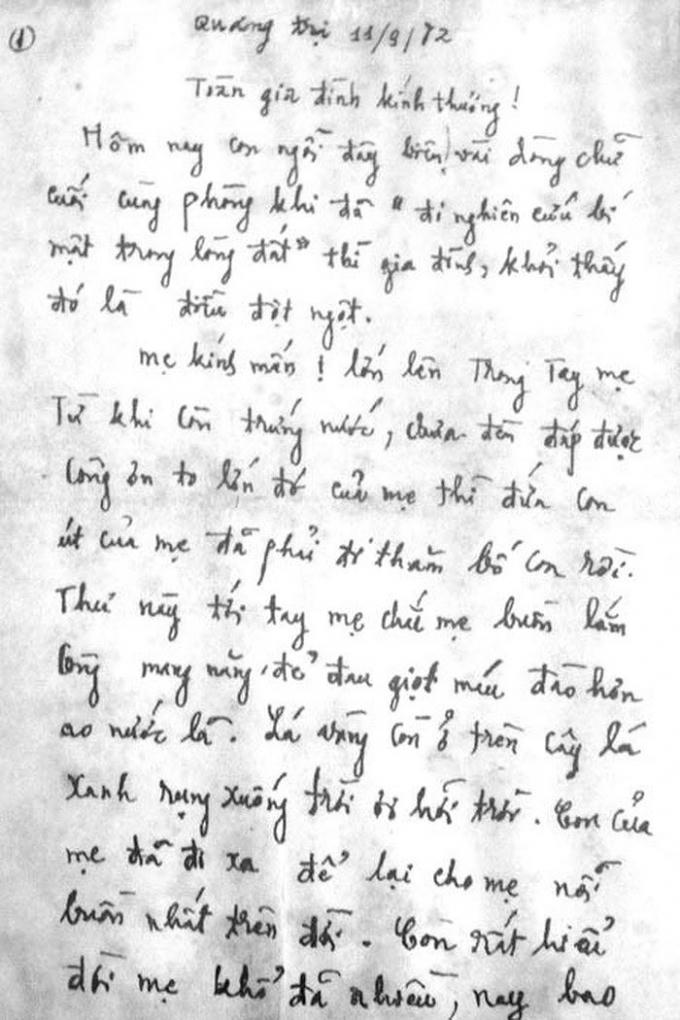 ①
Quảng trị 11/9/72
Toàn gia đình kính thương!
Hôm nay con ngồi đây biên vài dòng chữ
cuối cùng phòng khi đã "đi nghiên cứu bí
mật trong lòng đất" thì gia đình, khỏi thấy
đó là điều đột ngột.
Mẹ kính mến! lớn lên Trong Tay mẹ
Từ khi còn trứng nước, chưa đền đáp được
Công ơn to lớn đó của mẹ thì đứa con
út của mẹ đã phải đi thăm bố con rồi.
Thư này tới tay mẹ chắc mẹ buồn lắm
công mang nặng đẻ đau giọt máu đào hơn
ao nước lã. Lá vàng còn ở trên cây lá
xanh rụng xuống trời ơi hỡi trời. Con của
mẹ đã đi xa để lại cho mẹ nỗi
buồn nhất trên đời. Con rất hiểu
đời mẹ khổ đã nhiều, nay bao